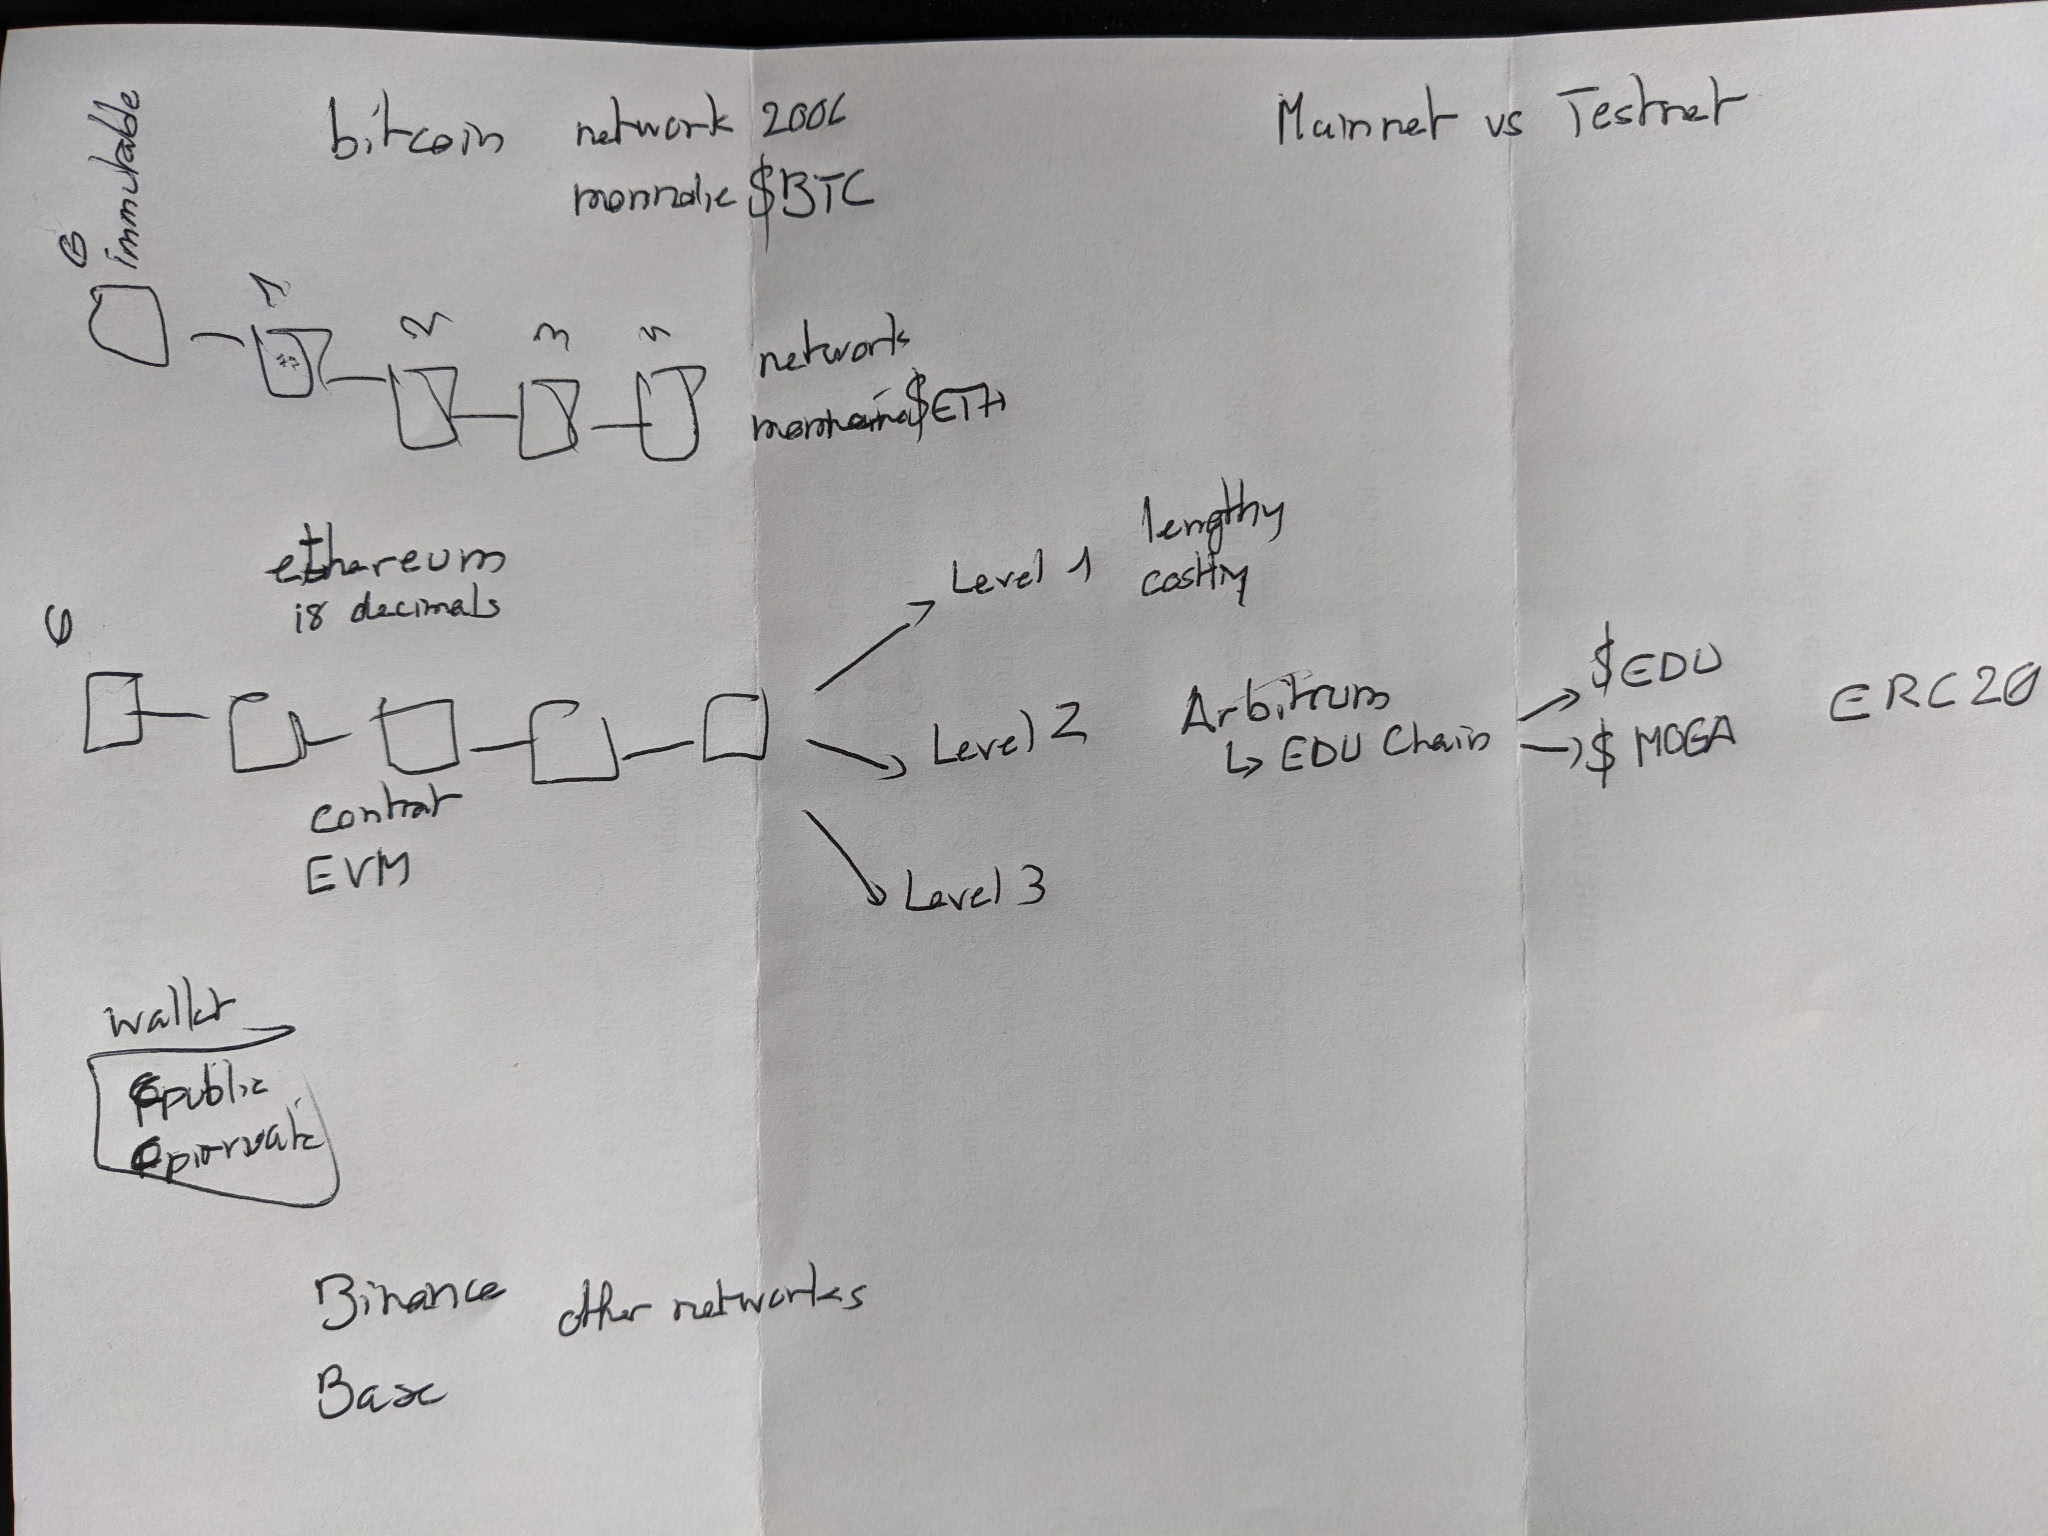 immutable
bitcoin network 2006
monnaie $BTC
Mainnet vs Testnet
G
1 2 3 4
network
$ETH
ethereum
18 decimals
Level 1 lengthy
costly
G
Level 2 Arbitrum
↳ EDU Chain
$EDU
$MOGA
ERC20
contrat
EVM
Level 3
wallet
public
private
Binance other networks
Base